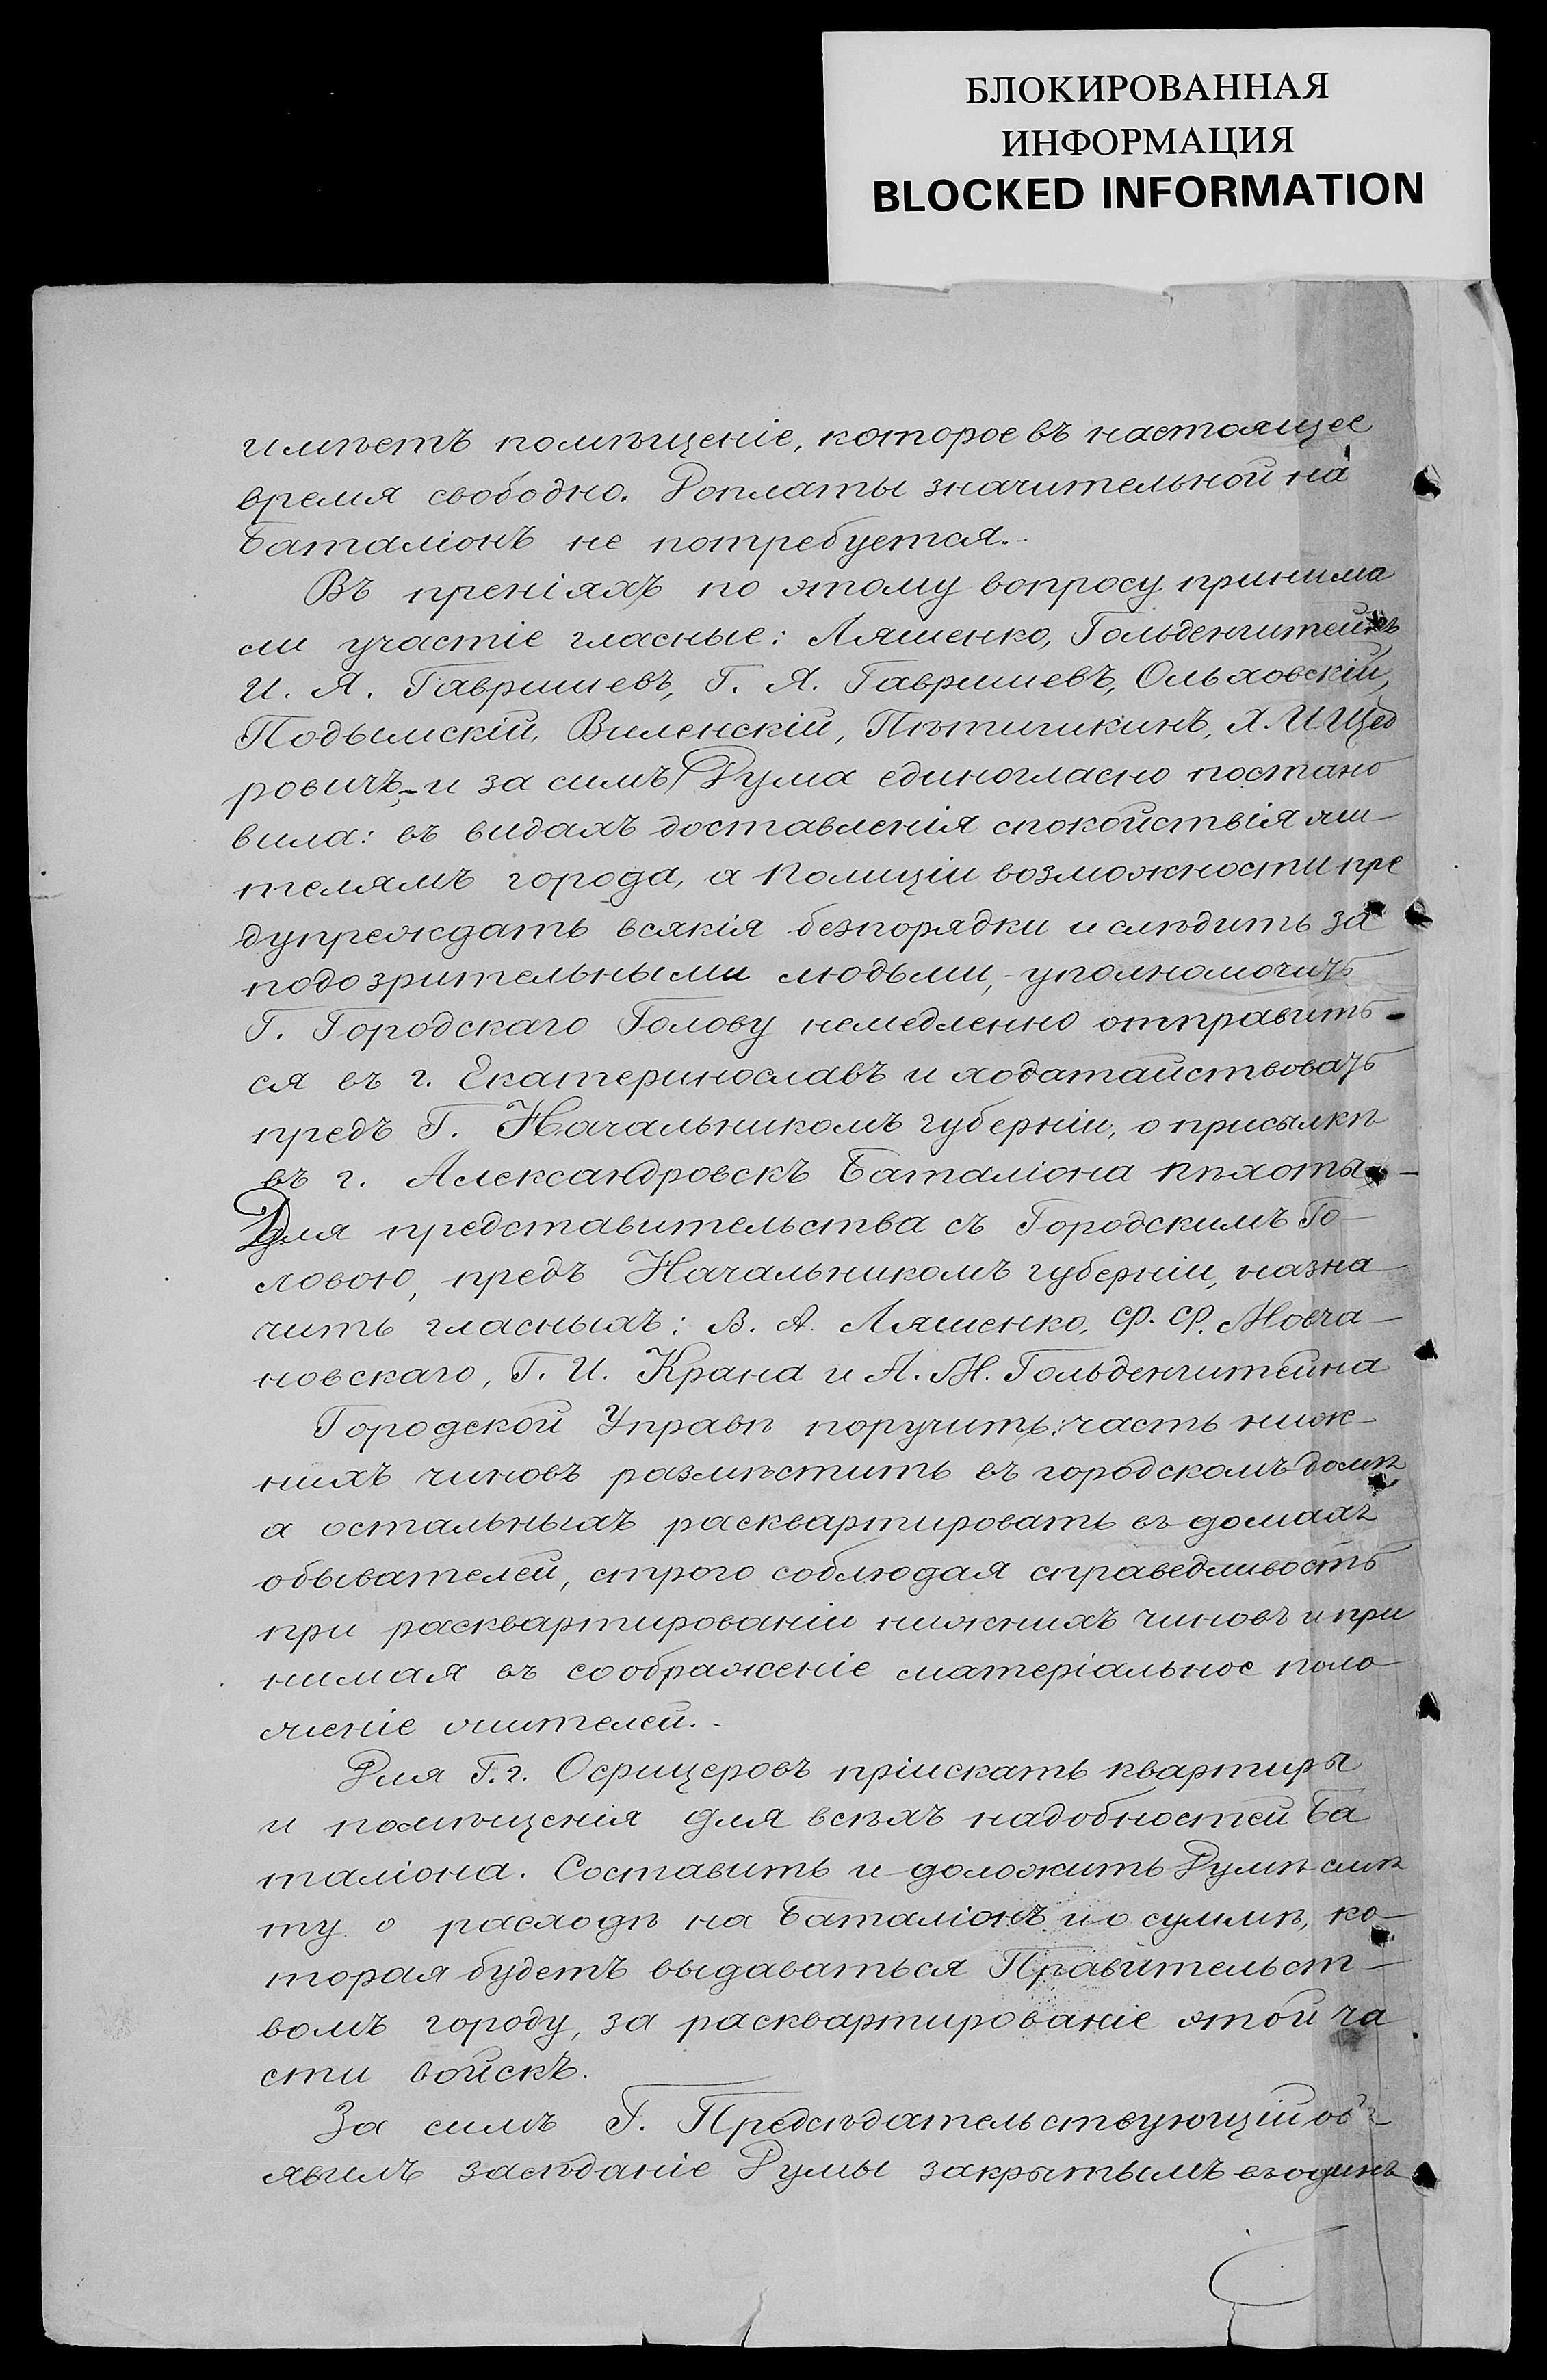 БЛОКИРОВАННАЯ
ИНФОРМАЦИЯ
BLOCKED INFORMATION
имѣетъ помѣщеніе, которое въ настоящее
время свободно. Доплаты значительной на
баталіонъ не потребуется.-
Въ преніяхъ по этому вопросу принима
ли участіе гласные: Ляшенко, Гольденштейнъ
И. Я. Гавришевъ, Г. Я. Гавришевъ, Ольховскій,
Подымскій, Виленскій, Пѣтишкинъ, Х. И. Щед
ровичъ,-и за симъ Дума единогласно постано
вила: въ видахъ доставленія спокойствія жи-
телямъ города, а Полиціи возможности пре
дупреждать всякія безпорядки и слѣдить за
подозрительными людьми,-уполномочить
Г. Городскаго Голову немедленно отправить-
ся въ г. Екатеринославъ и ходатайствовать
предъ Г. Начальникомъ губерніи, о присылкѣ
въ г. Александровскъ баталіона пѣхоты.-
Для представительства съ Городскимъ Го-
ловою, предъ Начальникомъ губерніи, назна
чить гласныхъ: В. А. Ляшенко, Ф. Ф. Мовча-
новскаго, Г. И. Крана и А. М. Гольденштейна
Городской Управѣ поручить: часть ниж-
нихъ чиновъ размѣстить въ городскомъ домѣ
а остальныхъ расквартировать въ домахъ
обывателей, строго соблюдая справедливость
при расквартированіи нижнихъ чиновъ и при
нимая въ соображеніе матеріальное поло
женіе жителей.-
Для Г.г. Офицеровъ пріискать квартиры
и помѣщенія для всѣхъ надобностей ба
таліона. Составить и доложить Думѣ смѣ
ту о расходѣ на баталіонъ и о суммѣ, ко-
торая будетъ выдаваться Правительст-
вомъ городу, за расквартированіе этой ча
сти войскъ.
За симъ Г. Предсѣдательствующій объ
явилъ засѣданіе Думы закрытымъ въ одинъ